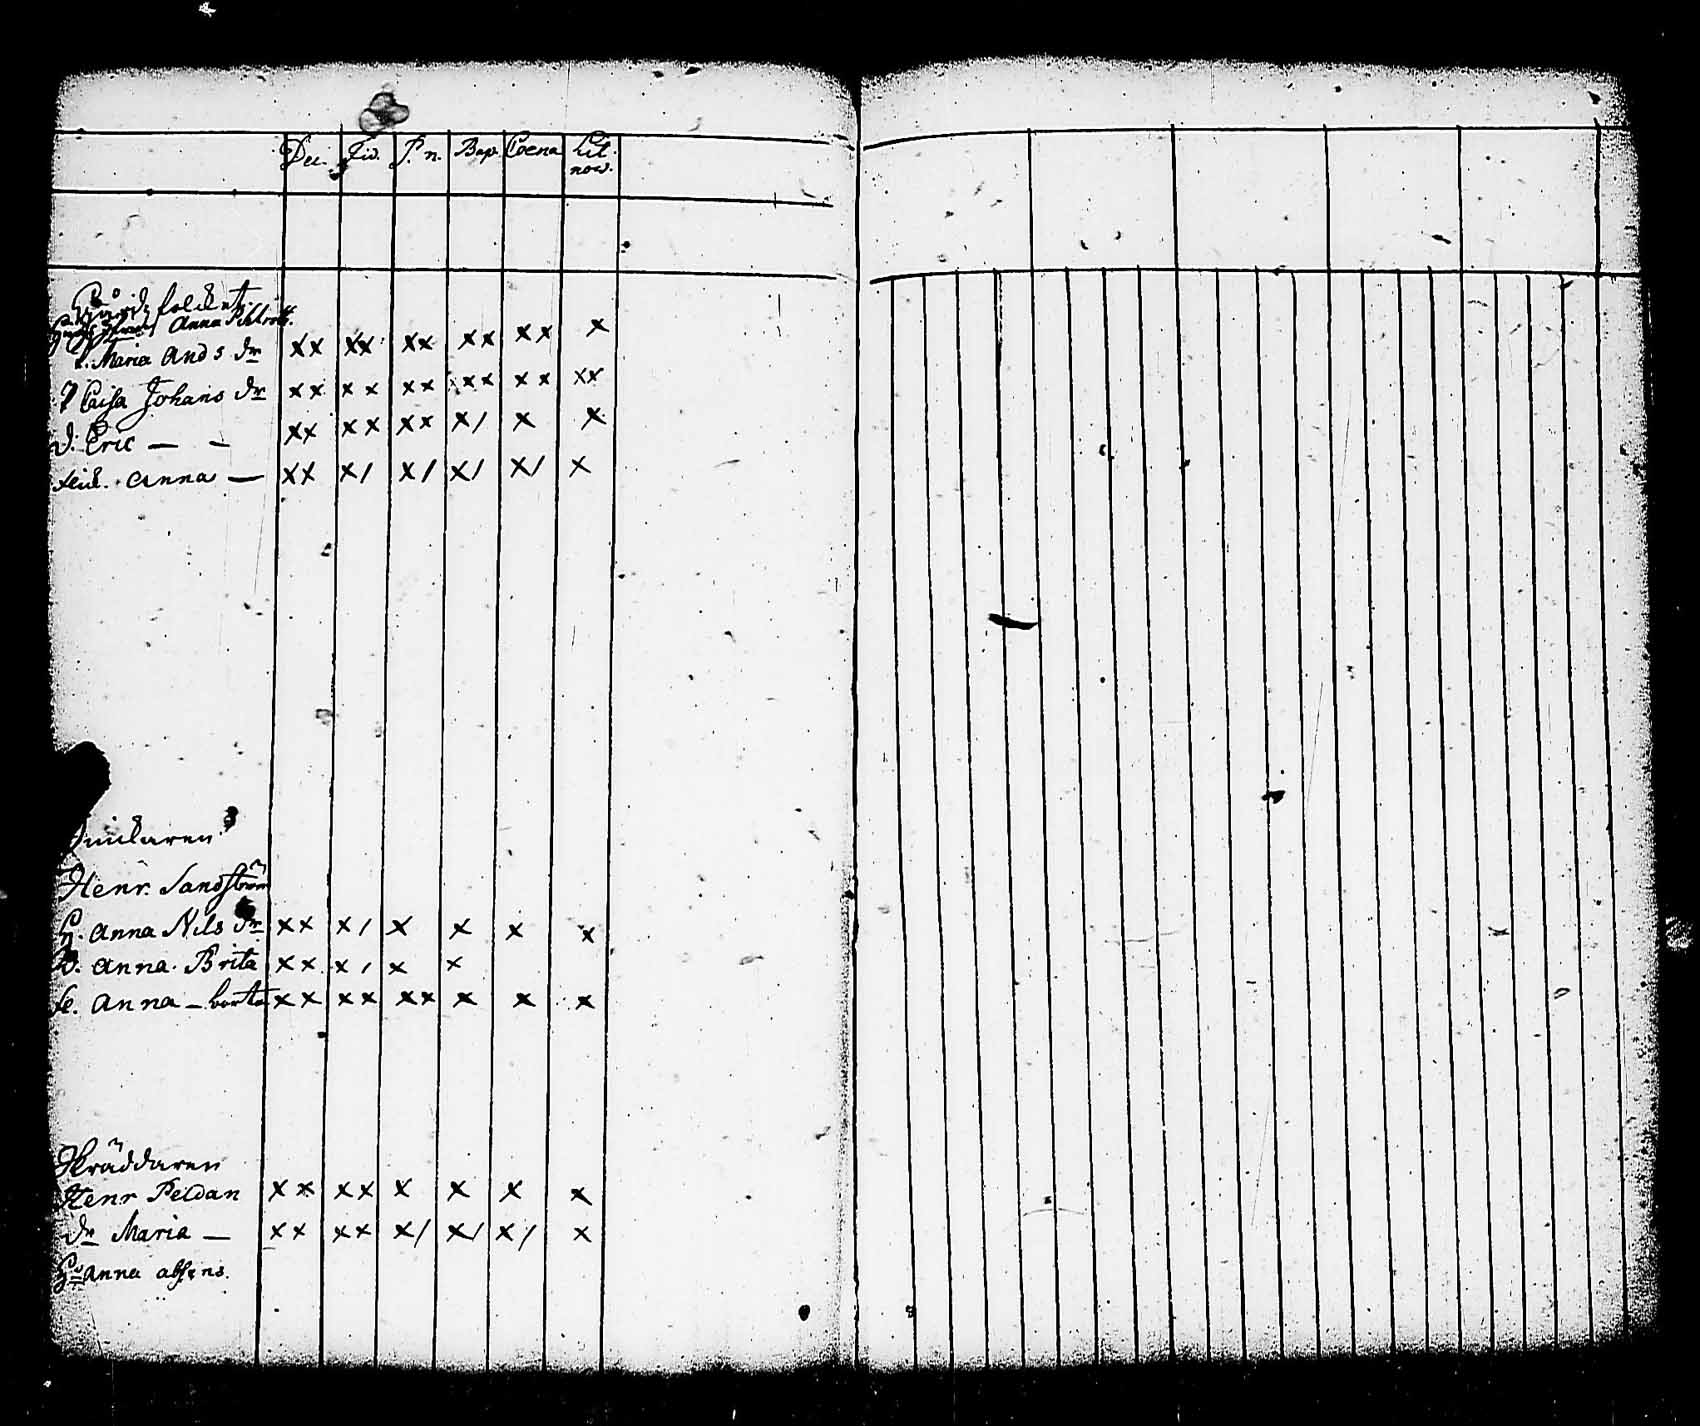 Dec. Fid. P. n. Bap. Coena Lit. nov.
Gårds folcket
Anna
Maria Ands dr xx xx xx xx xx x
Caisa Johans dr xx xx xx xx xx xx
d. Eric — — xx xx xx x/ x x
Anna — xx x/ x/ x/ x/ x
Henr. Sandström
H. Anna Nils dr xx x/ x x x x
D. Anna Brita xx x/ x x
Anna — borta xx xx xx x x x
Skräddaren
Henr Peldan xx xx x x x x
dr Maria — xx xx x/ x/ x/ x
Anna absens.